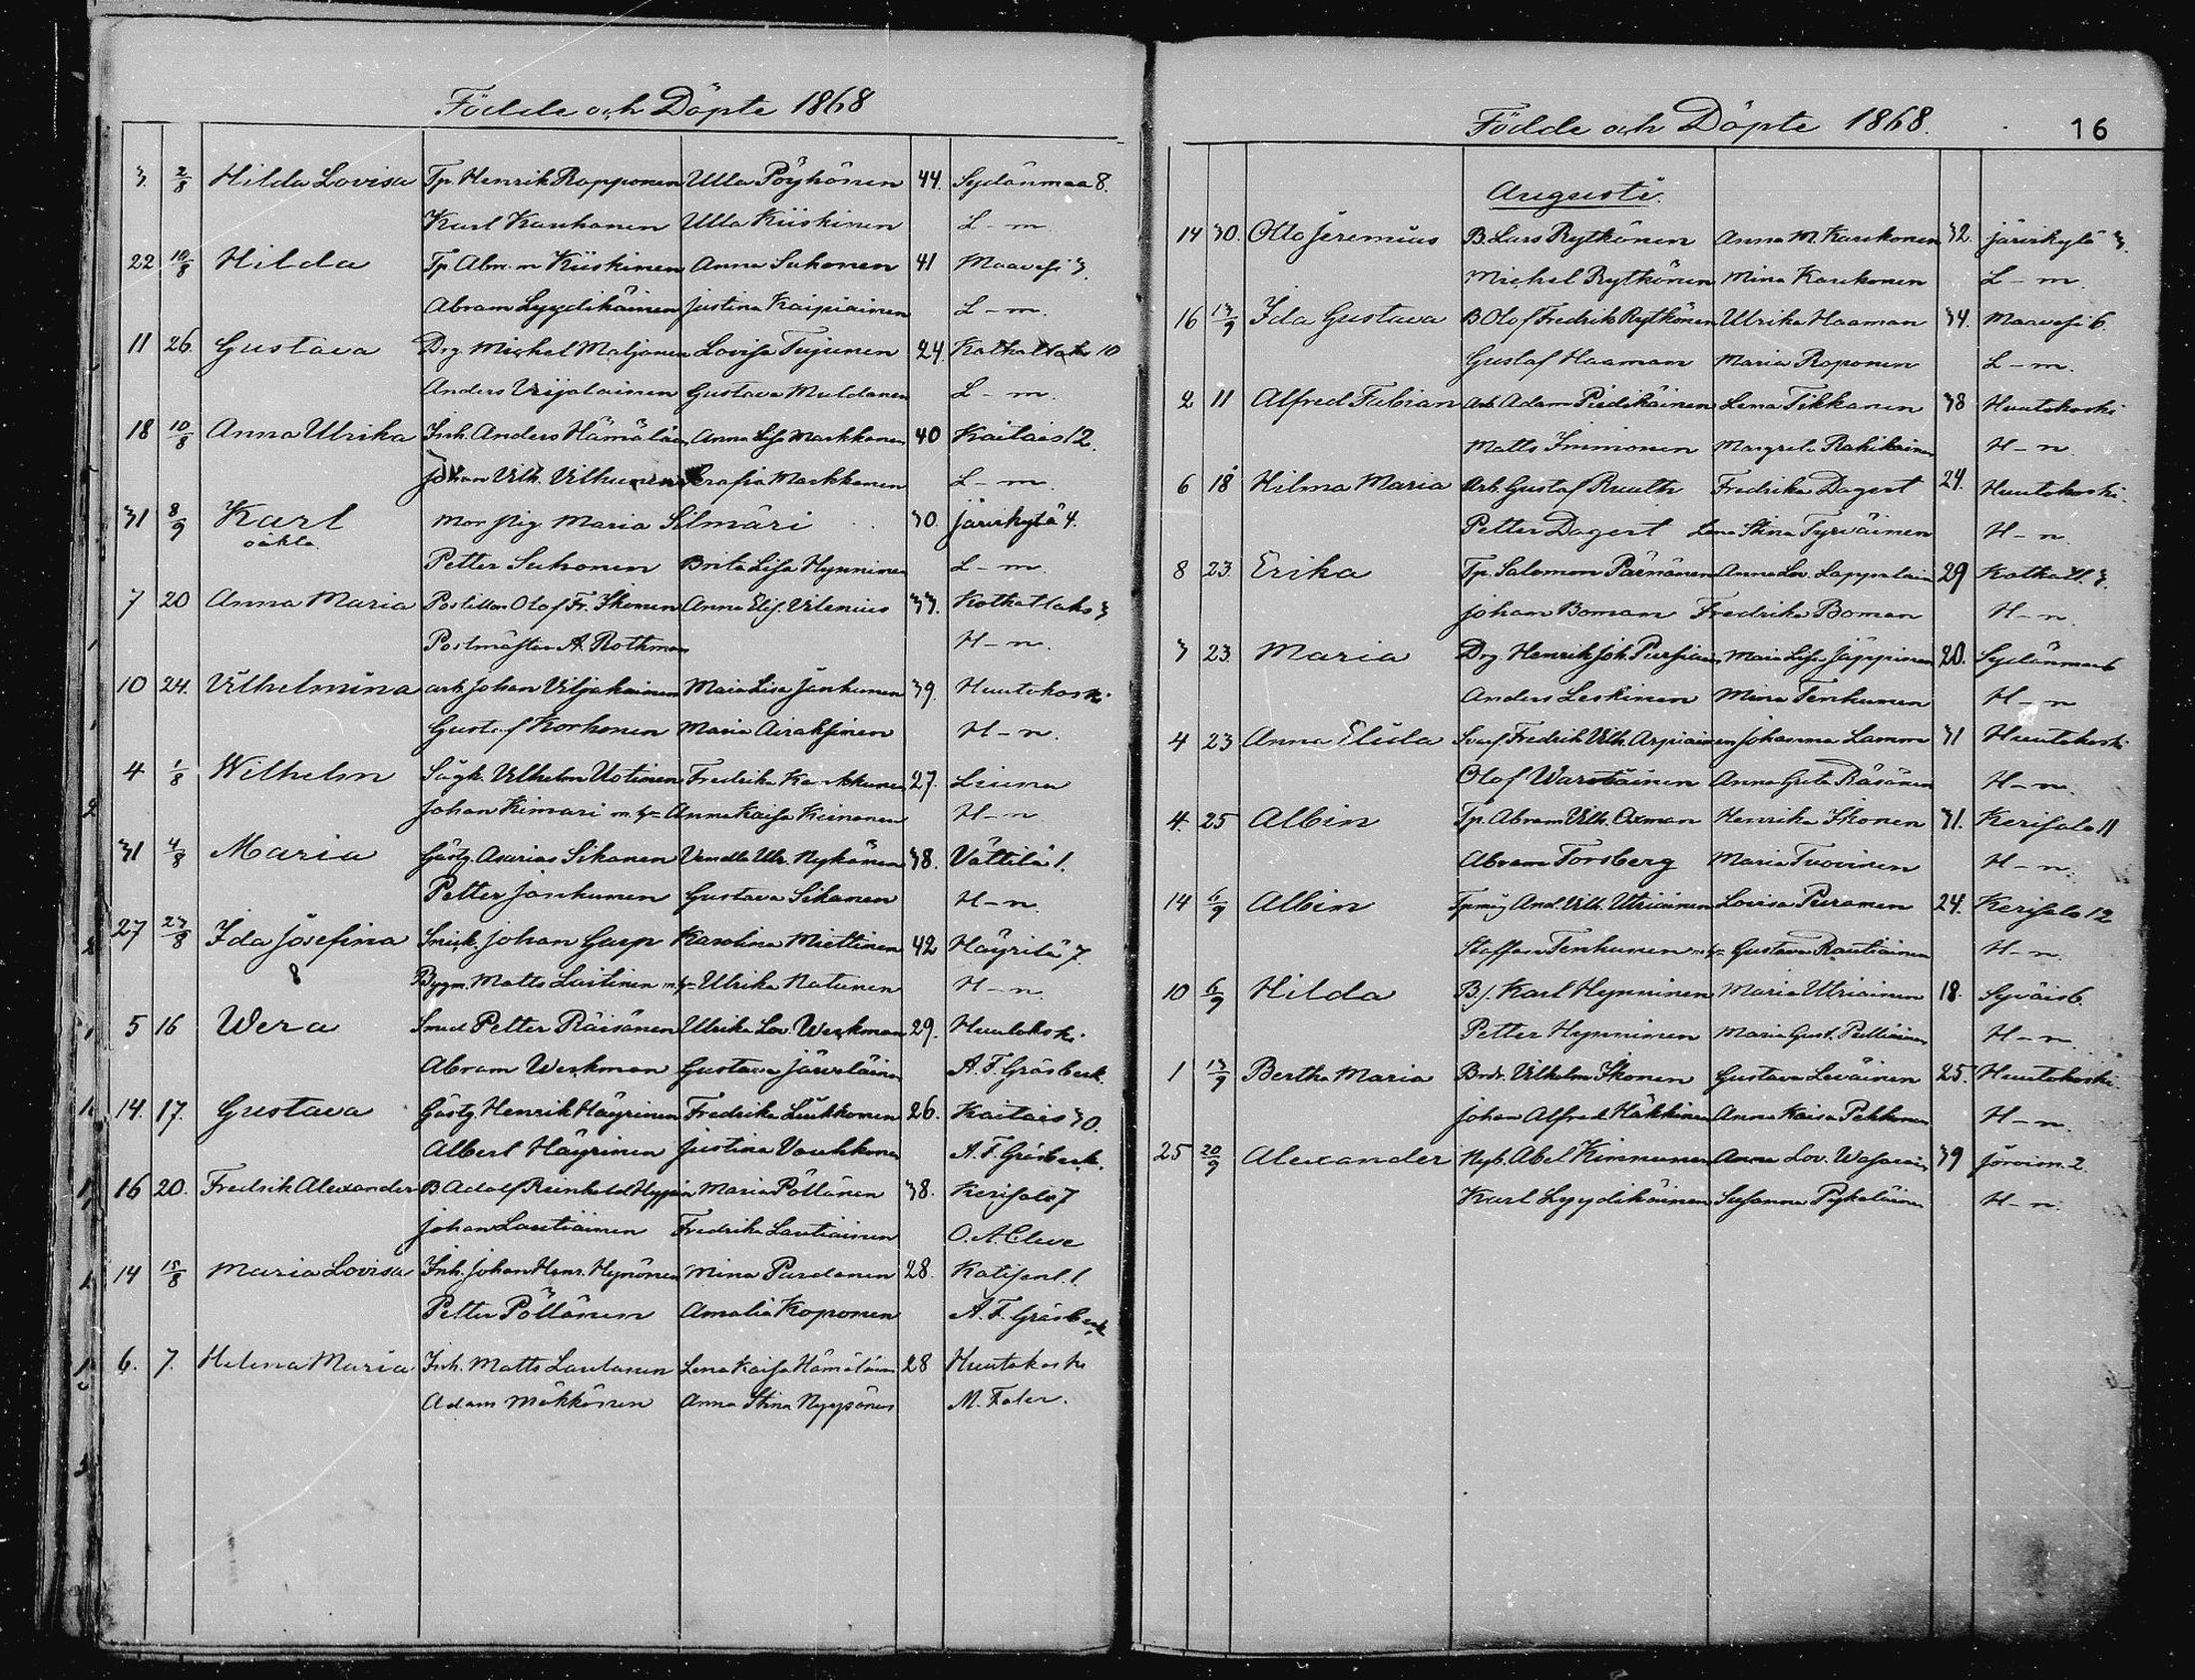 Födde och Döpte 1868
3. 2/8 Hilda Lovisa Tp. Henrik Ropponen Ulla Pöyhönen 44. Sydänmaa 8.
Karl Kauhanen Ulla Kiiskinen L-m.
22 10/8 Hilda Tp. Abr. Kiiskinen Anna Suhonen 41 Maavesi 3.
Abram Lyydikäinen Justina Kaipiainen L-m.
11 26. Gustava Drg. Michel Maljonen Lovisa Tujunen 24. Kotkatlaks 10
Anders Gustava Muldanen L-m.
18 10/8 Anna Ulrika Inh. Anders Hämäläin Anna Lisa Markkanen 40 Kaitais 12.
Johan Vilh. Vilhunen Serafia Markkanen L-m.
31 8/9 Karl Mor pig. Maria Silmäri 30. Järvikylä 4.
oäkta.
Petter Suhonen Brita Lisa Hynninen L-m.
7 20 Anna Maria Postillon Olof Fr. Ikonen Anna Elis. Vilenius 33. Kotkatlaks 3
Postmästar A. Rothman H-n.
10 24. Vilhelmina arb. Johan Viljakainen Maia Lisa Janhunen 39. Huutokoski
Gustaf Korhonen Maria Airaksinen H-n.
4 1/8 Wilhelm Sågk. Vilhelm Uotinen Fredrika Karkkunen 27. Liuna
Johan Kimari m. h. Anna Kaisa Keinonen H-n
31 4/8 Maria Gästg. Asarias Sikanen Vendla Ulr. Nykänen 38. Vättilä 1.
Petter Janhunen Gustava Sikanen H-n.
27 23/8 Ida Josefina Snick. Johan Garp Karolina Miettinen 42 Häyrilä 7.
8 Bygm. Matts Laitinen m. h. Ulrika Natunen H-n.
5 16 Wera Smed Petter Räisänen Ulrika Lov. Werkman 29. Huutokoski
Abram Werkman Gustava Järveläinen A. F. Gräsbeck.
14. 17. Gustava Gästg. Henrik Häyrinen Fredrika Liukkonen 26. Kaitais 30.
Albert Häyrinen Justina Vauhkonen A. F. Gräsbeck.
16 20. Fredrik Alexander B. Adolf Reinhold Hyppin Maria Pöllänen 38. Kerisalo 7
Johan Lautiainen Fredrika Lautiainen O. A. Cleve
14 15/8 Maria Lovisa Inh. Johan Henr. Hynönen Mina Pardanen 28. Katisenl. 1.
Petter Pöllänen Amalia Koponen A. F. Gräsbeck
6. 7. Helena Maria Inh. Matts Lautanen Lena Kaisa Hämäläin 28 Huutokoski
Adam Mäkkönen Anna Stina Nyyssönen M. Faler.
Födde och Döpte 1868. 16
Augusti.
14 30. Otto Jeremias B. Lars Rytkönen Anna M. Karkonen 32. Järvikylä 3.
Michel Rytkönen Mina Karkonen L-m.
16 13/9 Ida Gustava B Olof Fredrik Rytkönen Ulrika Haaman 34. Maavesi 6.
Gustaf Haaman Maria Roponen L-m.
2 11 Alfred Fabian Arb. Adam Piedikäinen Lena Tikkanen 38 Huutokoski
Matts Immonen Margreta Rahikainen H-n.
6 18 Hilma Maria Arb. Gustaf Ruuth Fredrika Dagert 24. Huutokoski.
Petter Dagert Lena Stina Tyrväinen H-n.
8 23. Erika Tp. Salomon Pärnänen Anna Lov. Lappalain 29 Kotkatl. 3.
Johan Boman Fredrika Boman H-n.
3 23. Maria Drg. Henrik Joh. Pursiain Maria Lisa Jäppinen 20. Sydänmaa 6
Anders Leskinen Mina Tenhunen H-n
4 23 Anna Elida Svarf. Fredrik Vilh. Arpiainen Johanna Lamm 31 Huutokoski
Olof Warstäinen Anna Greta Räsänen H-n.
4. 25 Albin Tp. Abram Vilh. Oxman Henrika Ikonen 31. Kerisalo 11
Abram Forsberg Maria Tuovinen H-n.
14 6/9 Albin Tpmåg And. Vilh. Utriainen Lovisa Piiramen 24. Kerisalo 12
Staffan Tenhunen m. h. Gustava Rautiainen H-n.
10 6/9 Hilda Bs. Karl Hynninen Maria Utriainen 18. Syväis 6.
Petter Hynninen Maria Gust. Pulliainen H-n.
1 13/9 Bertha Maria Bndr. Vilhelm Ikonen Gustava Leväinen 25. Huutokoski.
Johan Alfred Häkkinen Anna Kaisa Pekkonen H-n.
25 20/9 Alexander Nyb. Abel Kinnunen Anna Lov. 39 Joroinn. 2.
Karl Lyydikäinen Susanna Pykäläinen H-n.